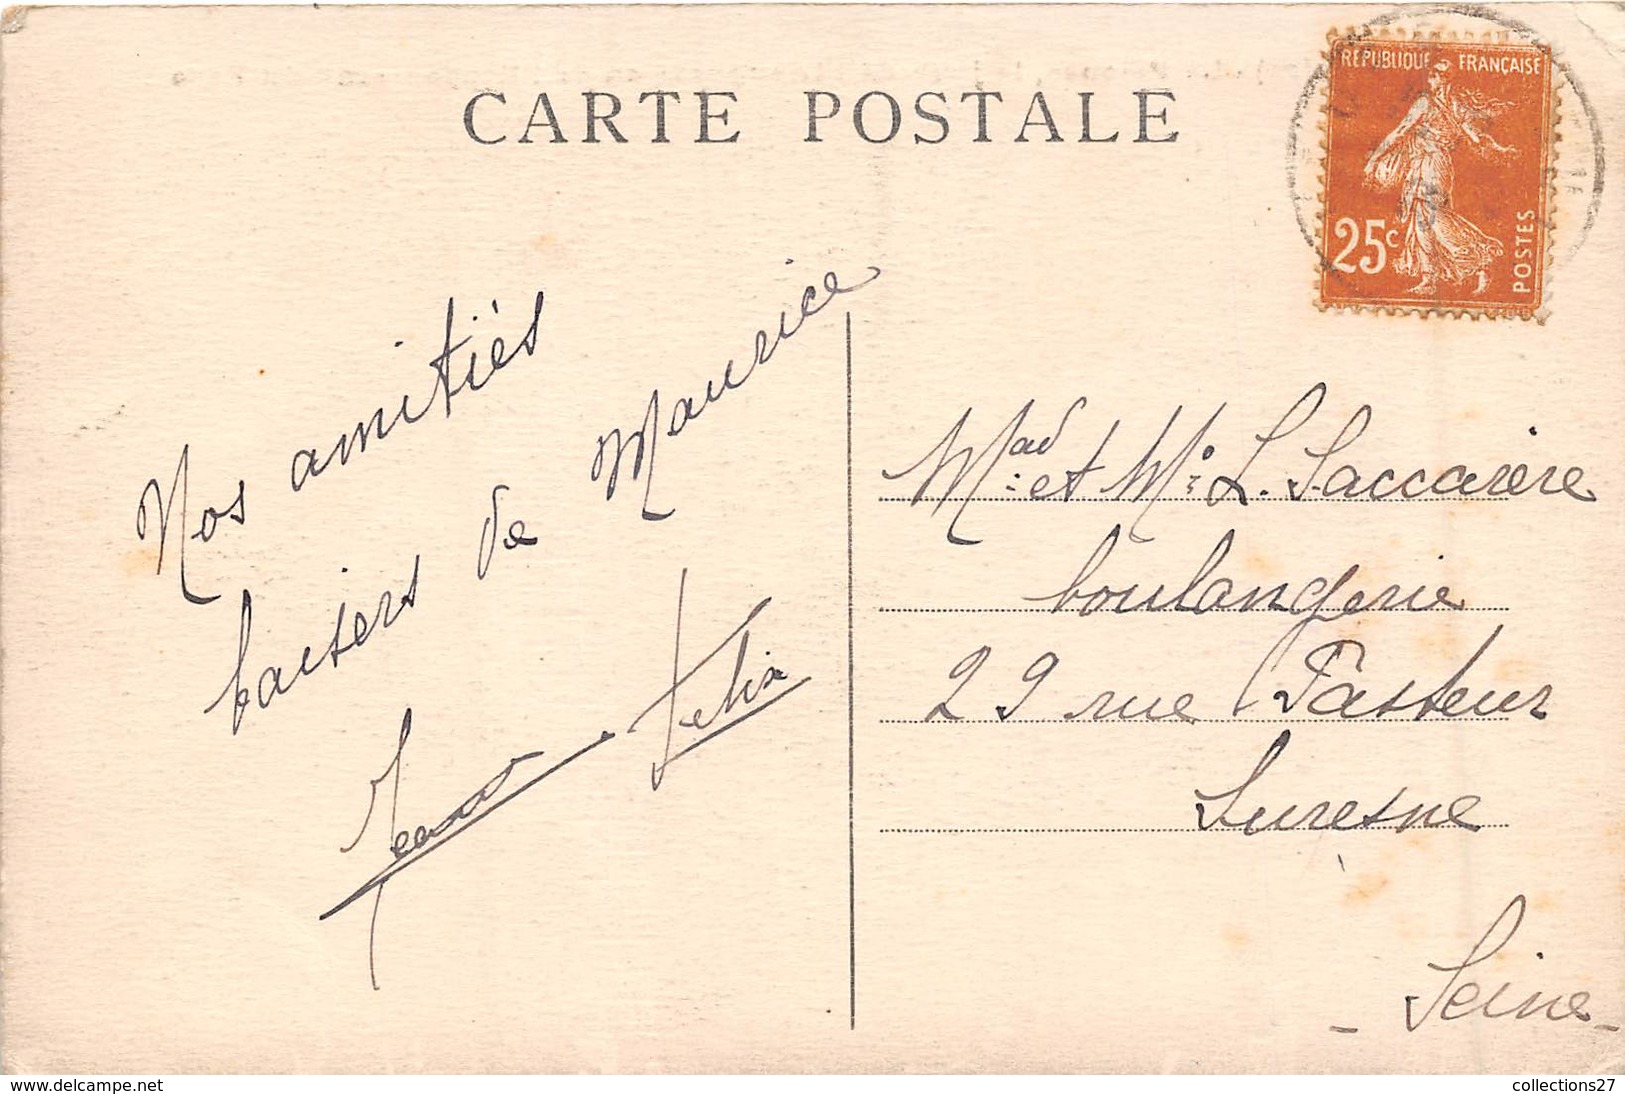 CARTE POSTALE
RÉPUBLIQUE FRANÇAISE
25c
POSTES
Nos amitiés
baisers de Maurice
Félix
Mad: et Mr L. Saccarère
boulangerie
29 rue Pasteur
Suresne
- Seine -
www.delcampe.net
collections27